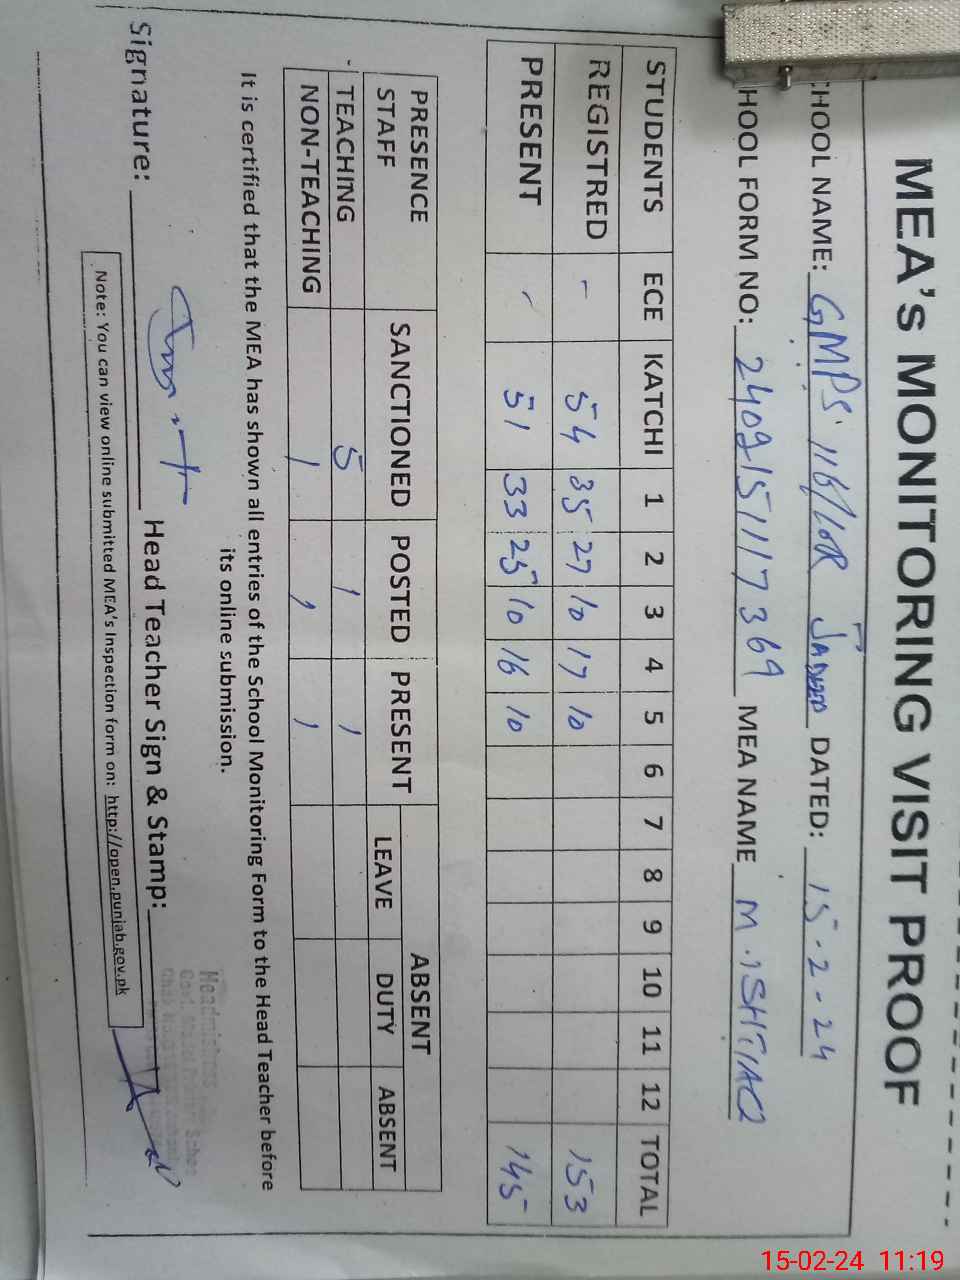 MEA's MONITORING VISIT PROOF
CHOOL NAME: GMPS 116/10R JADEED DATED: 15-2-24
HOOL FORM NO: 2409151117369 MEA NAME M.ISHTIAQ
STUDENTS ECE KATCHI 1 2 3 4 5 6 7 8 9 10 11 12 TOTAL
REGISTRED - 54 35 27 10 17 10 153
PRESENT - 51 33 25 10 16 10 145
PRESENCE STAFF SANCTIONED POSTED PRESENT ABSENT
LEAVE DUTY ABSENT
TEACHING 5 1 1
NON-TEACHING 1 , ,
It is certified that the MEA has shown all entries of the School Monitoring Form to the Head Teacher before
its online submission.
Signature: Head Teacher Sign & Stamp:
Headmistress
Note: You can view online submitted MEA's Inspection form on: http://open.punjab.gov.pk
15-02-24 11:19